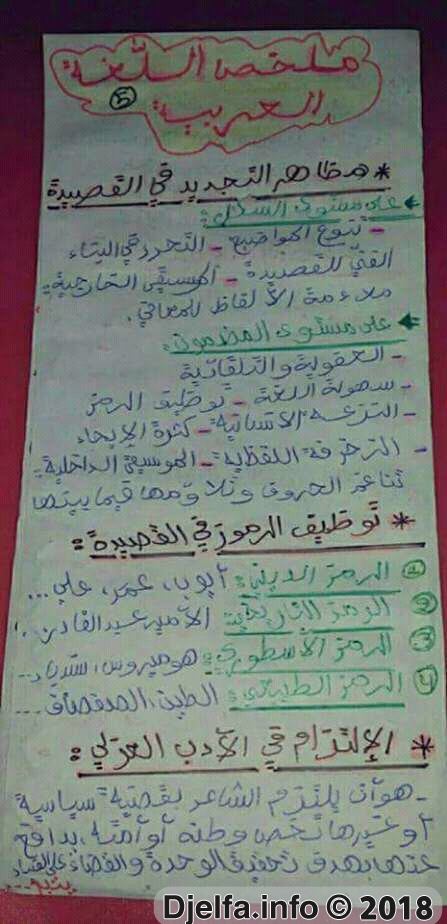 ملخص اللغة
العربية
5
* مظاهر التجديد في القصيدة
← على مستوى الشكل:
- تنوع المواضيع - التحرر في البناء
الفني للقصيدة - الموسيقى الخارجية:
ملاءمة الألفاظ للمعاني.
← على مستوى المضمون:
- العفوية والتلقائية
- سهولة اللغة - توظيف الرمز
- النزعة الإنسانية - كثرة الإيحاء
- الزخرفة اللفظية - الموسيقى الداخلية:
تناغم الحروف وتلاؤمها فيما بينها
* توظيف الرموز في القصيدة:
1 الرمز الديني: أيوب، عمر، علي...
2 الرمز التاريخي: الأمير عبد القادر..
3 الرمز الأسطوري: هوميروس، سندباد...
4 الرمز الطبيعي: الطين، الصفصاف...
* الإلتزام في الأدب العربي:
- هو أن يلتزم الشاعر بقضية سياسية
أو غيرها تخص وطنه أو أمته، يدافع
عنها بهدف تحقيق الوحدة والقضاء على الفساد
يتبع...
Djelfa.info © 2018